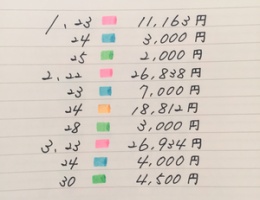 1.23 11,163円
24 3,000円
25 2,000円
2.22 26,838円
23 7,000円
24 18,812円
28 3,000円
3.23 26,934円
24 4,000円
30 4,500円